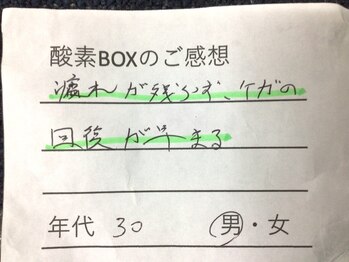 酸素BOXのご感想
疲れが残らず、ケガの
回復が早まる
年代 30 男・女